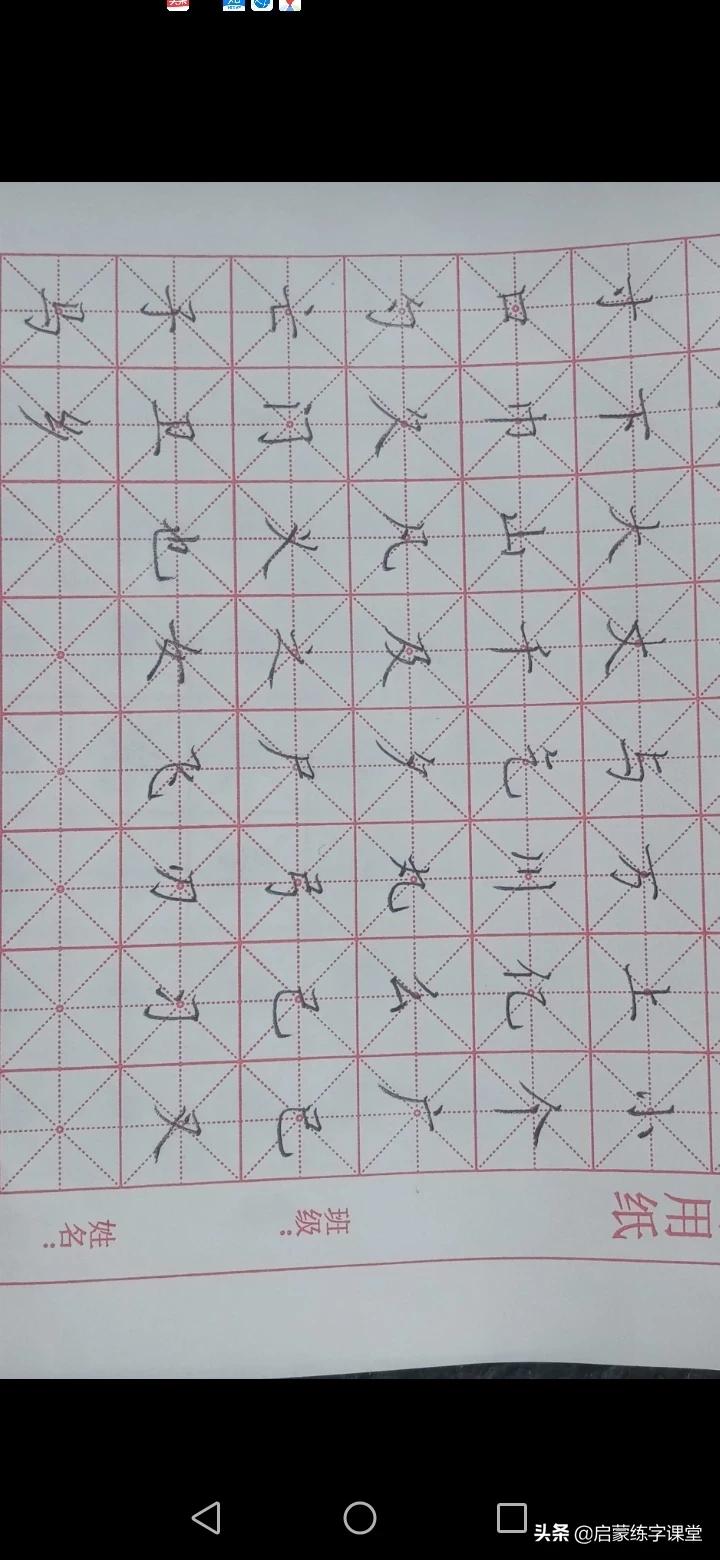 寸下大丈与万上小
口巾山千乞川亿个
勺久凡及夕丸么广
亡门义之尸弓己已
子卫也女飞刃习叉
马乡
用纸
班级：
姓名：
头条 @启蒙练字课堂